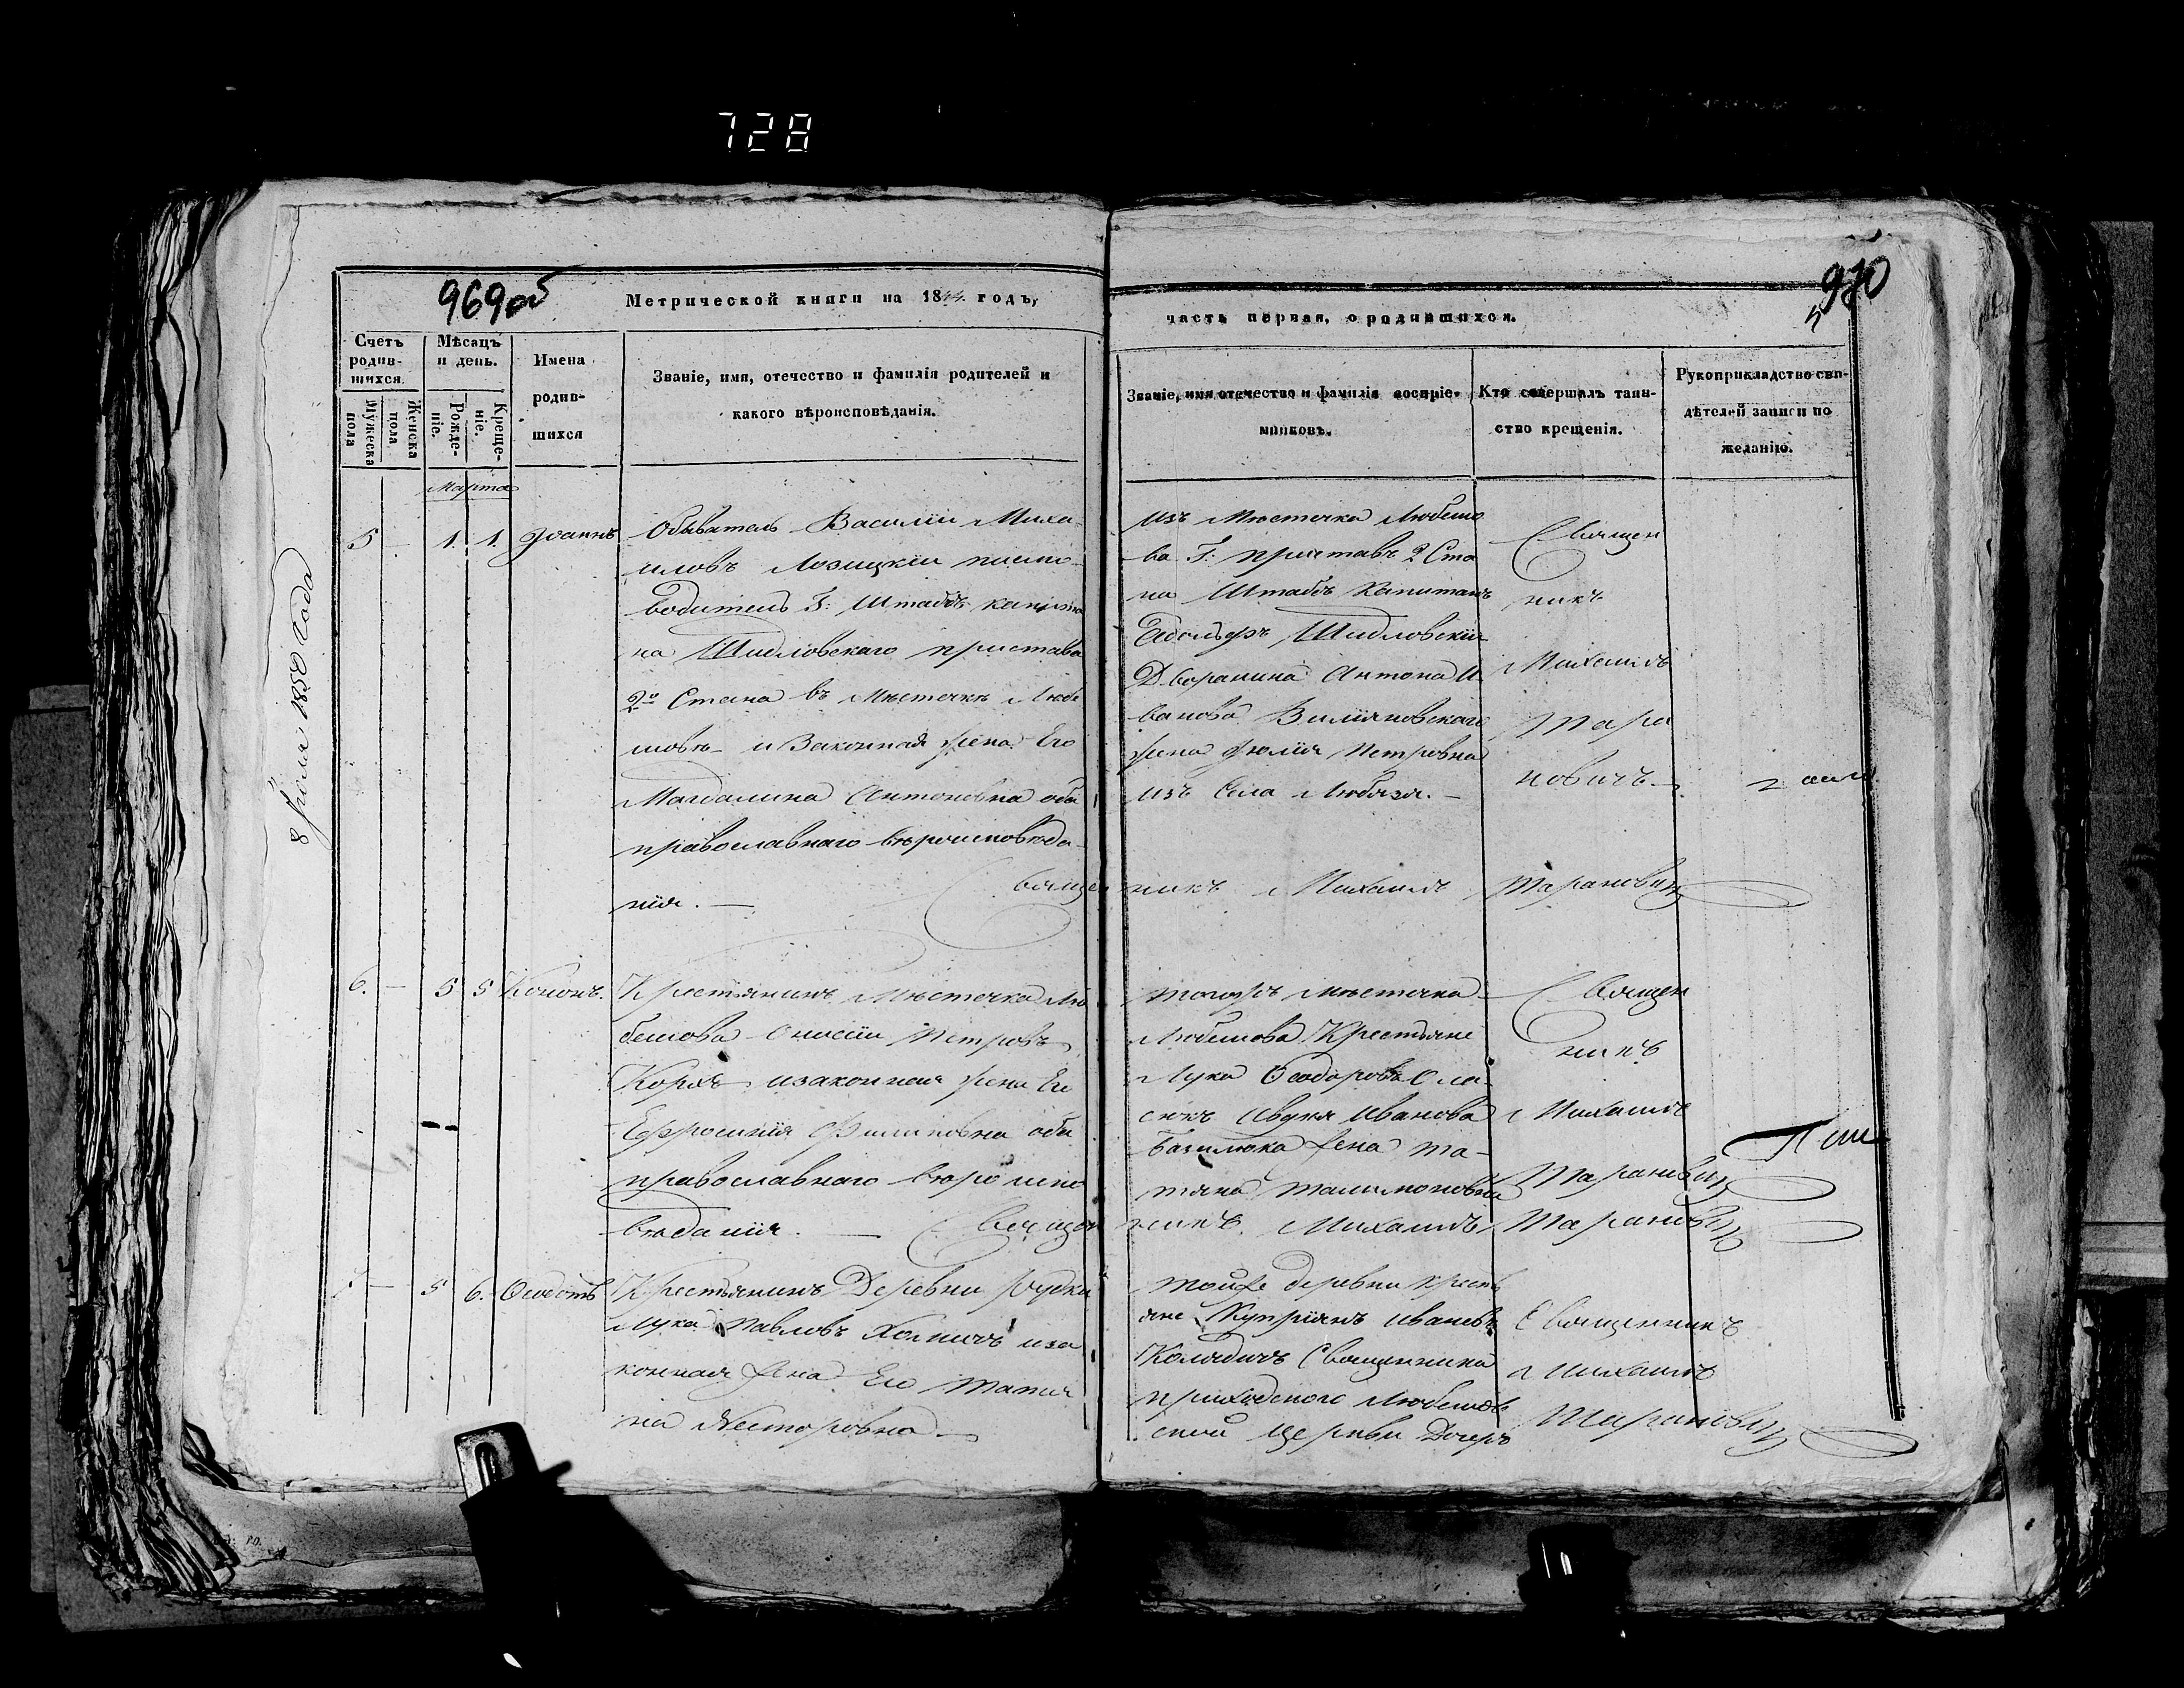 728
969об
970
5
Метрической книги на 1844 годъ,
часть первая, о родившихся.
Счетъ родив-шихся.
Мужеска пола
Женска пола
Мѣсяцъ и день.
Рожде-ніе.
Креще-ніе.
Имена родив-шихся
Званіе, имя, отечество и фамилія родителей и какого вѣроисповѣданія.
Званіе, имя отечество и фамилія воспріе-мниковъ.
Кто совершалъ таин-ство крещенія.
Рукоприкладство сви-дѣтелей записи по желанію.
8 1850 года
Марта
5 — 1. 1. Іоаннъ
Обыватель Василій Миха-
иловъ Лозицкій письмо-
водитель Г: Штабсъ капита
на Шидловскаго пристава
2го Стана въ Мѣстечкѣ Любе
шовѣ и Законная жена Его
Магдалина Антоновна оба
православнаго вѣроисповѣда-
нія. —
изъ Мѣстечка Любешо
ва Г: приставъ 2 Ста
на Штабсъ Капитанъ
Адольфъ Шидловскій
Дворянина Антона И
ванова
жена Юлія Петровна
изъ Села Любязя. —
Священ
никъ
Михаилъ
Тара
новичъ
Священникъ Михаилъ Тарановичъ
6. — 5 5 Кононъ.
Крестьянинъ Мѣстечка Лю
бешова Онисій Петровъ
Корхъ изаконная жена Его
Ефросинія Филиповна оба
православнаго вѣроиспо
вѣданія. —
тогожъ мѣстечка
Любешова Крестьяне
Лука Ѳеодоровъ Ола-
сюкъ Авдѣя Иванова
Базилюка жена Та-
тяна
Священ
никъ
Михаилъ
Тарановичъ
Священникъ Михаилъ Тарановичъ
7 — 5 6. Ѳеодотъ
Крестьянинъ Деревни Рудки
Лука Павловъ Холничъ иза
конная жена Его Татія
на Несторовна
тойже деревни кресть
яне Купріянъ Ивановъ
Колядичъ Священника
приходскаго Любешов
ской Церкви Дочерь
Священникъ
Михаилъ
Тарановичъ